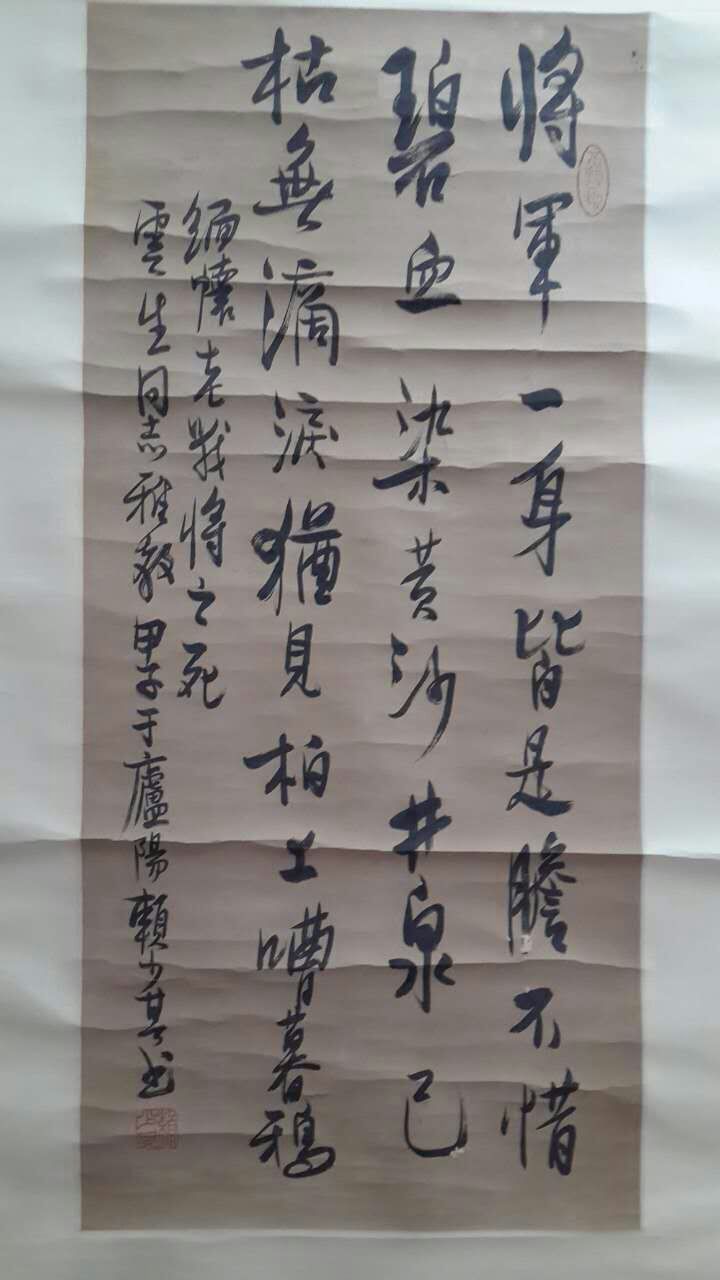 将軍一身皆是膽不惜
碧血染黄沙井泉已
枯無滴淚猶見柏上嘈暮鴉
緬懷老戰将之死
雲生同志雅教甲子于廬陽賴少其书